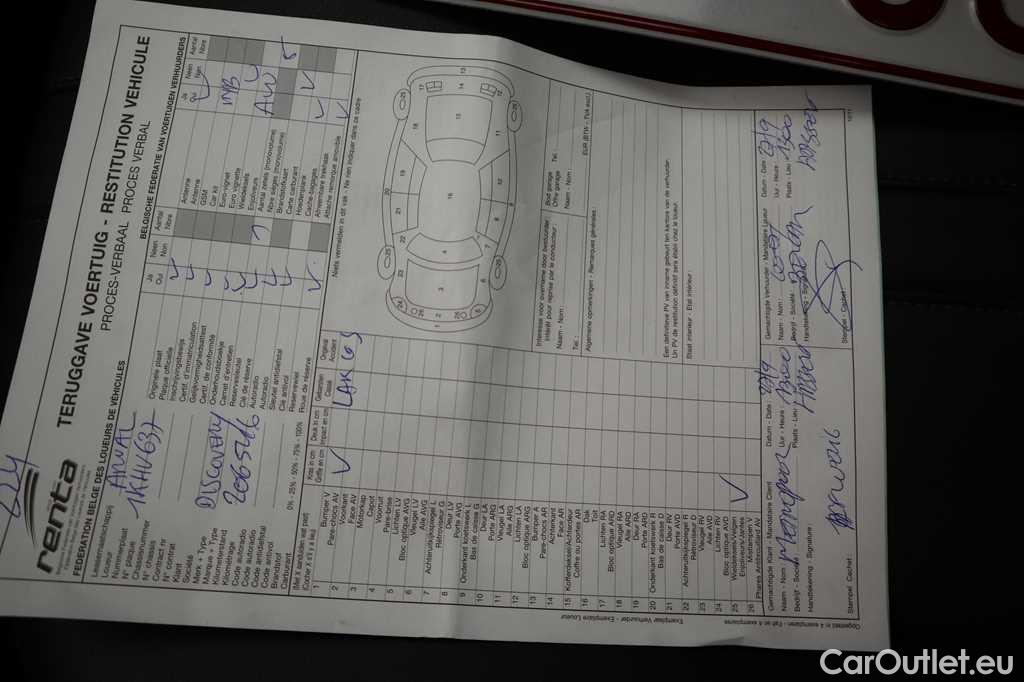 TERUGGAVE VOERTUIG - RESTITUTION VEHICULE
PROCES-VERBAAL PROCES VERBAL
renta
FEDERATION BELGE DES LOUEURS DE VÉHICULES
BELGISCHE FEDERATIE VAN VOERTUIGEN VERHUURDERS
Leasemaatschappij
Loueur
ARVAL
Nummerplaat
N° plaque
1KHU637
Chassisnummer
N° chassis
Contract nr
N° contrat
Klant
Société
Merk - Type
Marque - Type
DISCOVERY
Kilometerstand
Kilométrage
Code autoradio
Code autoradio
Code antidiefstal
Code antivol
Brandstof
Carburant
0% - 25% - 50% - 75% - 100%
Ja Neen Aantal
Oui Non Nbre
Originele plaat
Plaque officielle
Inschrijvingsbewijs
Certif. d'immatriculation
Gelijkvormigheidsattest
Certif. de conformité
Onderhoudsboekje
Carnet d'entretien
Reservesleutel
Clé de réserve
Autoradio
Autoradio
Sleutel antidiefstal
Clé antivol
Reservewiel
Roue de réserve
Ja Neen Aantal
Oui Non Nbre
Antenne
Antenne
GSM
Car kit
Euro-vignet
Euro vignette
Wieldeksels
Enjoliveurs
Aantal zetels (monovolume)
Nbre sièges (monovolume)
Brandstofkaart
Carte carburant
Hoedenplank
Cache-bagages
Afneembare trekhaak
Attache remorque amovible
Niets vermelden in dit vak - Ne rien indiquer dans ce cadre
1 Bumper V
Pare-chocs AV
2 Voorkant
Face AV
3 Motorkap
Capot
4 Voorruit
Pare-brise
5 Lichten LV
Bloc optique AVG
6 Vleugel LV
Aile AVG
7 Achteruitkijkspiegel L
Rétroviseur G
8 Deur LV
Porte AVG
9 Onderkant koetswerk L
Bas de caisse G
10 Deur LA
Porte ARG
11 Vleugel LA
Aile ARG
12 Lichten LA
Bloc optique ARG
13 Bumper A
Pare-chocs AR
14 Achterkant
Face AR
15 Kofferdeksel/Achterdeur
Coffre ou portes AR
16 Dak
Toit
17 Lichten RA
Bloc optique ARD
18 Vleugel RA
Aile ARD
19 Deur RA
Porte ARD
20 Onderkant koetswerk R
Bas de caisse D
21 Deur RV
Porte AVD
22 Achteruitkijkspiegel R
Rétroviseur D
23 Vleugel RV
Aile AVD
24 Lichten RV
Bloc optique AVD
25 Wieldeksels/Velgen
Enjoliveurs/Jantes
26 Mistlampen V
Phares Antibrouillard AV
Kras in cm
Griffe en cm
Deuk in cm
Impact en cm
Gebroken
Cassé
Ongeval
Accident
Interesse voor overname door bestuurder :
Intérêt pour reprise par le conducteur :
Naam - Nom :
Tel. :
Bod garage
Offre garage
Naam - Nom :
Tel. :
EUR (BTW - TVA excl.)
Algemene opmerkingen - Remarques générales :
Een definitieve PV van inname gebeurt ten kantore van de verhuurder.
Un PV de restitution définitif sera établi chez le loueur.
Staat interieur - Etat intérieur :
Gemachtigde Klant - Mandataire Client
Naam - Nom :
Bedrijf - Société
Handtekening - Signature :
Stempel Cachet :
Datum - Date :
Uur - Heure :
Plaats - Lieu :
Gemachtigde Verhuurder - Mandataire Loueur
Naam - Nom :
Bedrijf - Société :
Handtekening - Signature
Stempel - Cachet :
Datum - Date :
Uur - Heure :
Plaats - Lieu :
Exemplaar Verhuurder - Exemplaire Loueur
Opgesteld in 4 exemplaren - Fait en 4 exemplaires
CarOutlet.eu